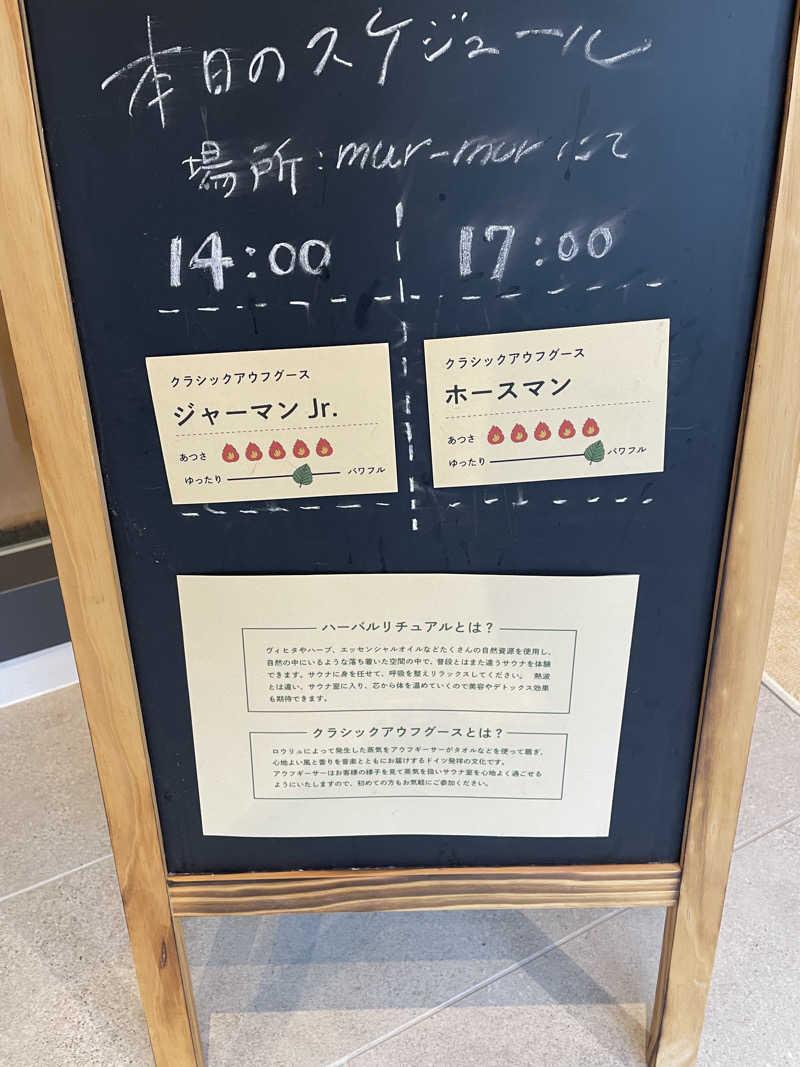 本日のスケジュール
場所:mur-murにて
14:00
17:00
クラシックアウフグース
ジャーマン Jr.
あつさ
ゆったり パワフル
クラシックアウフグース
ホースマン
あつさ
ゆったり パワフル
ハーバルリチュアルとは?
ヴィヒタやハーブ、エッセンシャルオイルなどたくさんの自然資源を使用し、
自然の中にいるような落ち着いた空間の中で、普段とはまた違うサウナを体験
できます。サウナに身を任せて、呼吸を整えリラックスしてください。 熱波
とは違い、サウナ室に入り、芯から体を温めていくので美容やデトックス効果
も期待できます。
クラシックアウフグースとは?
ロウリュによって発生した蒸気をアウフギーサーがタオルなどを使って扇ぎ、
心地よい風と香りを音楽とともにお届けするドイツ発祥の文化です。
アウフギーサーはお客様の様子を見て蒸気を扱いサウナ室を心地よく過ごせる
ようにいたしますので、初めての方もお気軽にご参加ください。